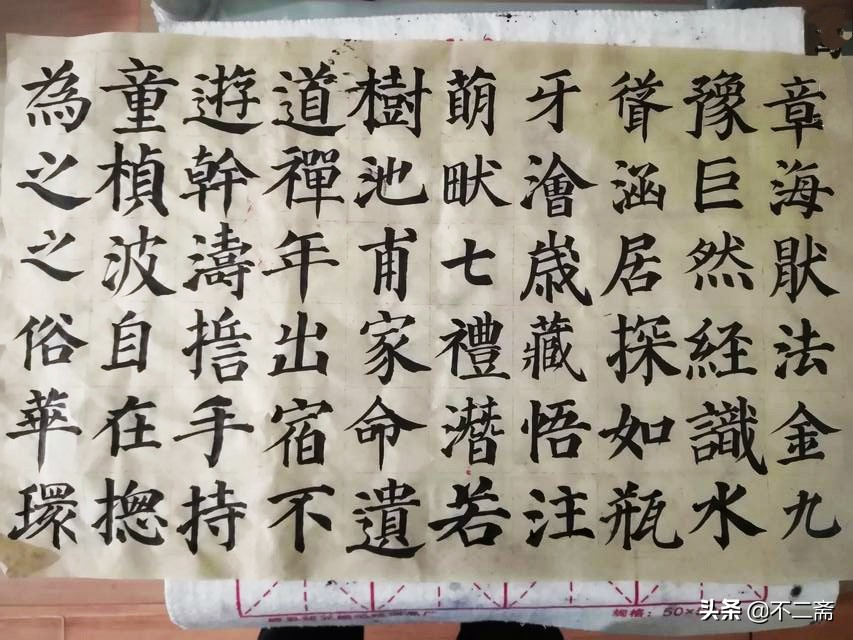 為童遊道樹萌牙聳豫章
之楨幹禪池畎澮涵巨海
之波濤年甫七歲居然猒
俗自誓出家禮藏探經法
華在手宿命潛悟如識金
環揔持不遺若注瓶水九
规格：50×
头条 @不二斋